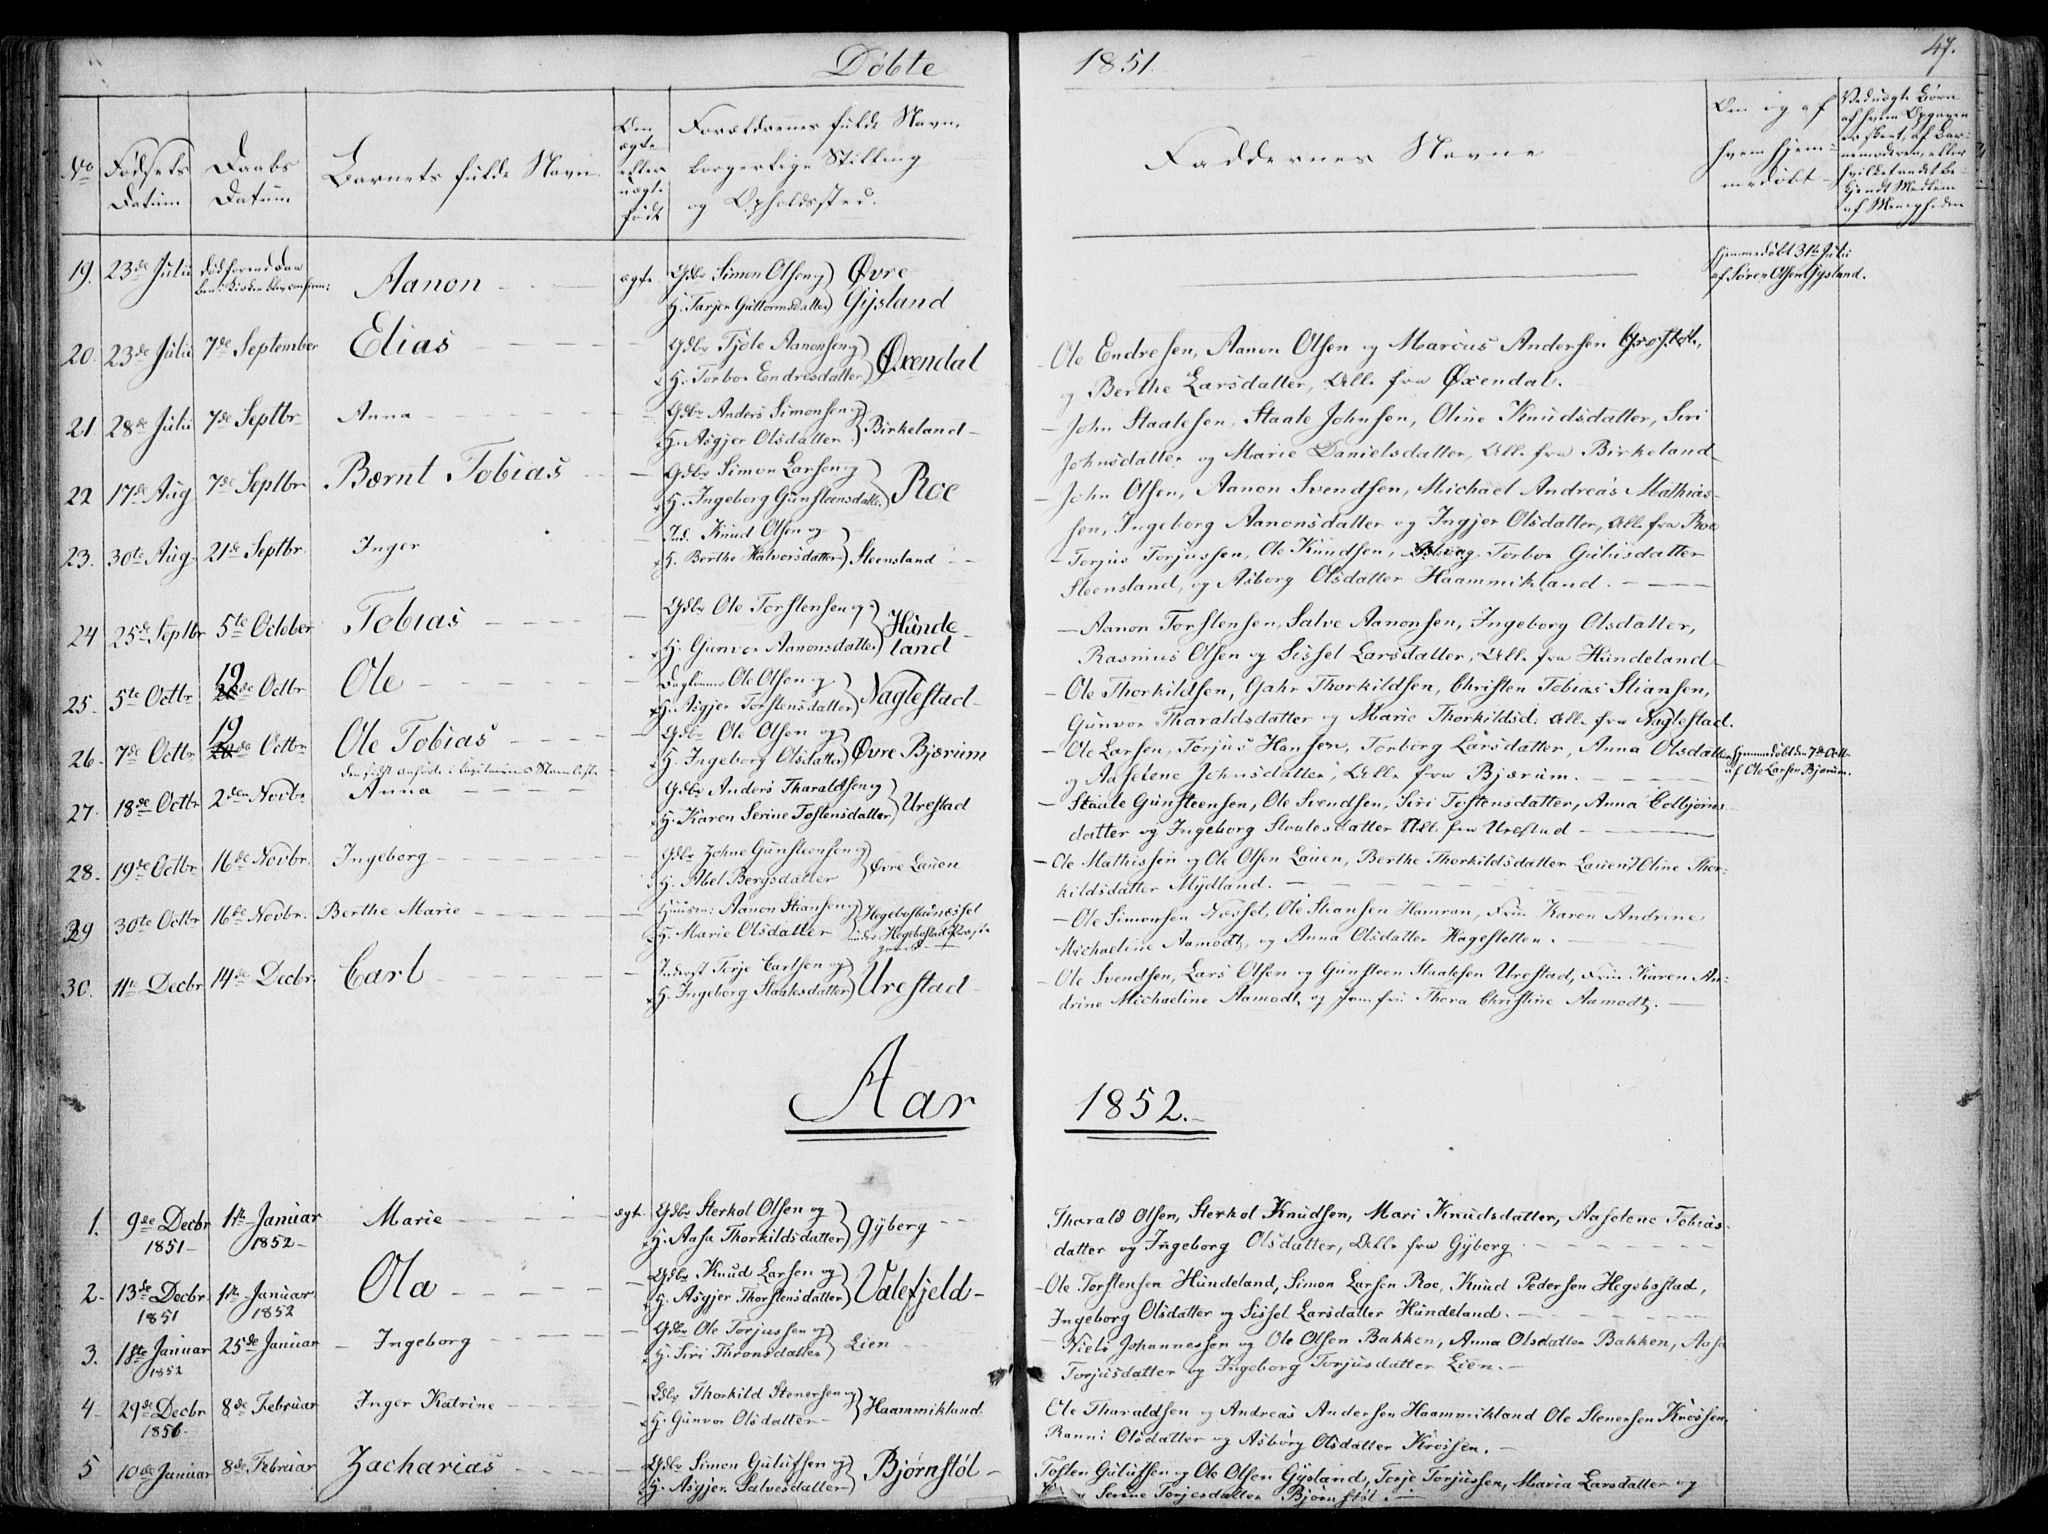 Døbte 1851. 47.
No
Fødsels Datum
Daabs Datum
Barnets fulde Navn
Om ægte eller uægte født
Forældrenes fulde Navn,
borgerlige Stilling
og Opholdssted.
Faddernes Navne
Om og af
hvem hjem-
medøbt
19. 23de Juli Aanon ægte Gdbr Simon Olsen og
H. Tarjer Guttormsdatter Øvre Gysland
hjemmedøbt 31te Julii
af Søren Olsen Gysland.
20. 23de Julii 7de September Elias Gdbr Tjøle Aanonsen og
H. Torbor Endresdatter Øxendal
Ole Endresen, Aanon Olsen og Marcus Andersen
og Berthe Larsdatter, Alle fra Øxendal.
21. 28de Julii 7de Septbr Anna Gdbr Anders Simonsen og
H. Asgjer Olsdatter Birkeland
John Staalesen, Staale Johnsen, Oline Knudsdatter, Siri
Johnsdatter og Marie Danielsdatter, Alle fra Birkeland
22 17de Aug 7de Septbr Bærnt Tobias Gdbr Simon Larsen og
H. Ingeborg Gunsteensdatter Roe
John Olsen, Aanon Svendsen, Michael Andreas Mathias-
sen, Ingeborg Aanonsdatter og Ingjer Olsdatter, Alle fra Roe
23. 30te Aug. 21de Septbr. Inger Ind. Knud Olsen og
H. Berthe Halvorsdatter Steensland
Torjus Torjussen, Ole Knudsen, Torbor Gulufsdatter
Steensland, og Asborg Olsdatter Haammikland.
24 25de Septbr 5te October Tobias Gdbr Ole Torstensen og
H. Gunvor Aanonsdatter Hunde
land
Aanon Torstensen, Salve Aanonsen, Ingeborg Olsdatter,
Rasmus Olsen og Sissel Larsdatter, Alle fra Hundeland
25. 5te Octbr 19de Octbr Ole Daglønner Ole Olsen og
H. Asgjer Torstensdatter Naglestad
Ole Thorkildsen, Gahr Thorkildsen, Christen Tobias Stiansen,
Gunvor Tharaldsdatter og Marie Thorkildsd: Alle fra Naglestad.
26. 7de Octbr 19de Octbr Ole Tobias Gdbr Ole Olsen og
H. Ingeborg Olsdatter Øvre Bjærum
Ole Larsen, Torjus Hansen, Torborg Larsdatter, Anna Olsdatter
og Aaselene Johnsdatter, Alle fra Bjærum.
hjemmedøbt den 7de Octbr
af Ole Larsen Bjærum.
27. 18de Octbr 2den Novbr Anna Gdbr Anders Tharaldsen og
H. Karen Serine Tostensdatter Urestad
Staale Gunsteensen, Ole Svendsen, Siri Tostensdatter, Anna Colbjørns
datter og Ingeborg Staalesdatter Alle fra Urestad
28. 19de Octbr 16de Novbr. Ingeborg Gdbr Gunsteensen og
H. Abel Bergsdatter Øvre Lauen
Ole Mathissen og Ole Olsen Lauen, Berthe Thorkildsdatter Lauen, Oline Thor-
kildsdatter Mydland.
29 30te Octbr 16de Novbr. Berthe Marie Huusm: Aanon Stiansen og
H. Marie Olsdatter
Ole Simonsen Næsset, Ole Stiansen Hamran, Frue Karen Andrine
Michaeline Aamodt, og Anna Olsdatter Hagestetten.
30. 11te Decbr 14de Decbr. Carl Inderst Terje Carlsen og
H. Ingeborg Staalesdatter Urestad
Ole Svendsen, Lars Olsen og Gunsteen Staalesen Urestad, Frue Karen An-
drine Michaeline Aamodt, og Jomfru Thora Christine Aamodt.
Aar 1852.
1. 9de Decbr 1851 1ste Januar 1852 Marie ægte Gdbr Sterkol Olsen og
H. Aasa Thorkildsdatter Gyberg
Tharald Olsen, Sterkol Knudsen, Mari Knudsdatter, Aaselene Tobias-
datter og Ingeborg Olsdatter, Alle fra Gyberg
2. 13de Decbr 1851 1ste Januar 1852 Ola Gdbr Knud Larsen og
H. Asgjer Thorstensdatter Valefjeld
Ole Torstensen Hundeland, Simon Larsen Roe, Knud Pedersen Hegebostad,
Ingeborg Olsdatter og Sissel Larsdatter Hundeland.
3. 18te Januar 1852 25de Januar Ingeborg Gdbr Ole Torjussen og
H. Siri Thronsdatter Lien
Niels Johannessen og Ole Olsen Bakken, Anna Olsdatter Bakken, Aasa
Torjusdatter og Ingeborg Torjusdatter Lien.
4. 29de Decbr 8de Februar Inger Katrine Gdbr Thorkild Stenersen og
H. Gunvor Olsdatter Haammikland
Ole Tharaldsen og Andreas Andersen Haammikland Ole Stenersen Krossen,
Ranni Olsdatter og Asborg Olsdatter Krossen.
5 10de Januar 8de Februar Zacharias Gdbr Simon Gulufsen og
H. Asgjer Salvesdatter Bjørnstøl
Tosten Gulufsen og Ole Olsen Gysland, Terje Torjussen, Maria Larsdatter og
Serine Torjesdatter Bjørnstøl